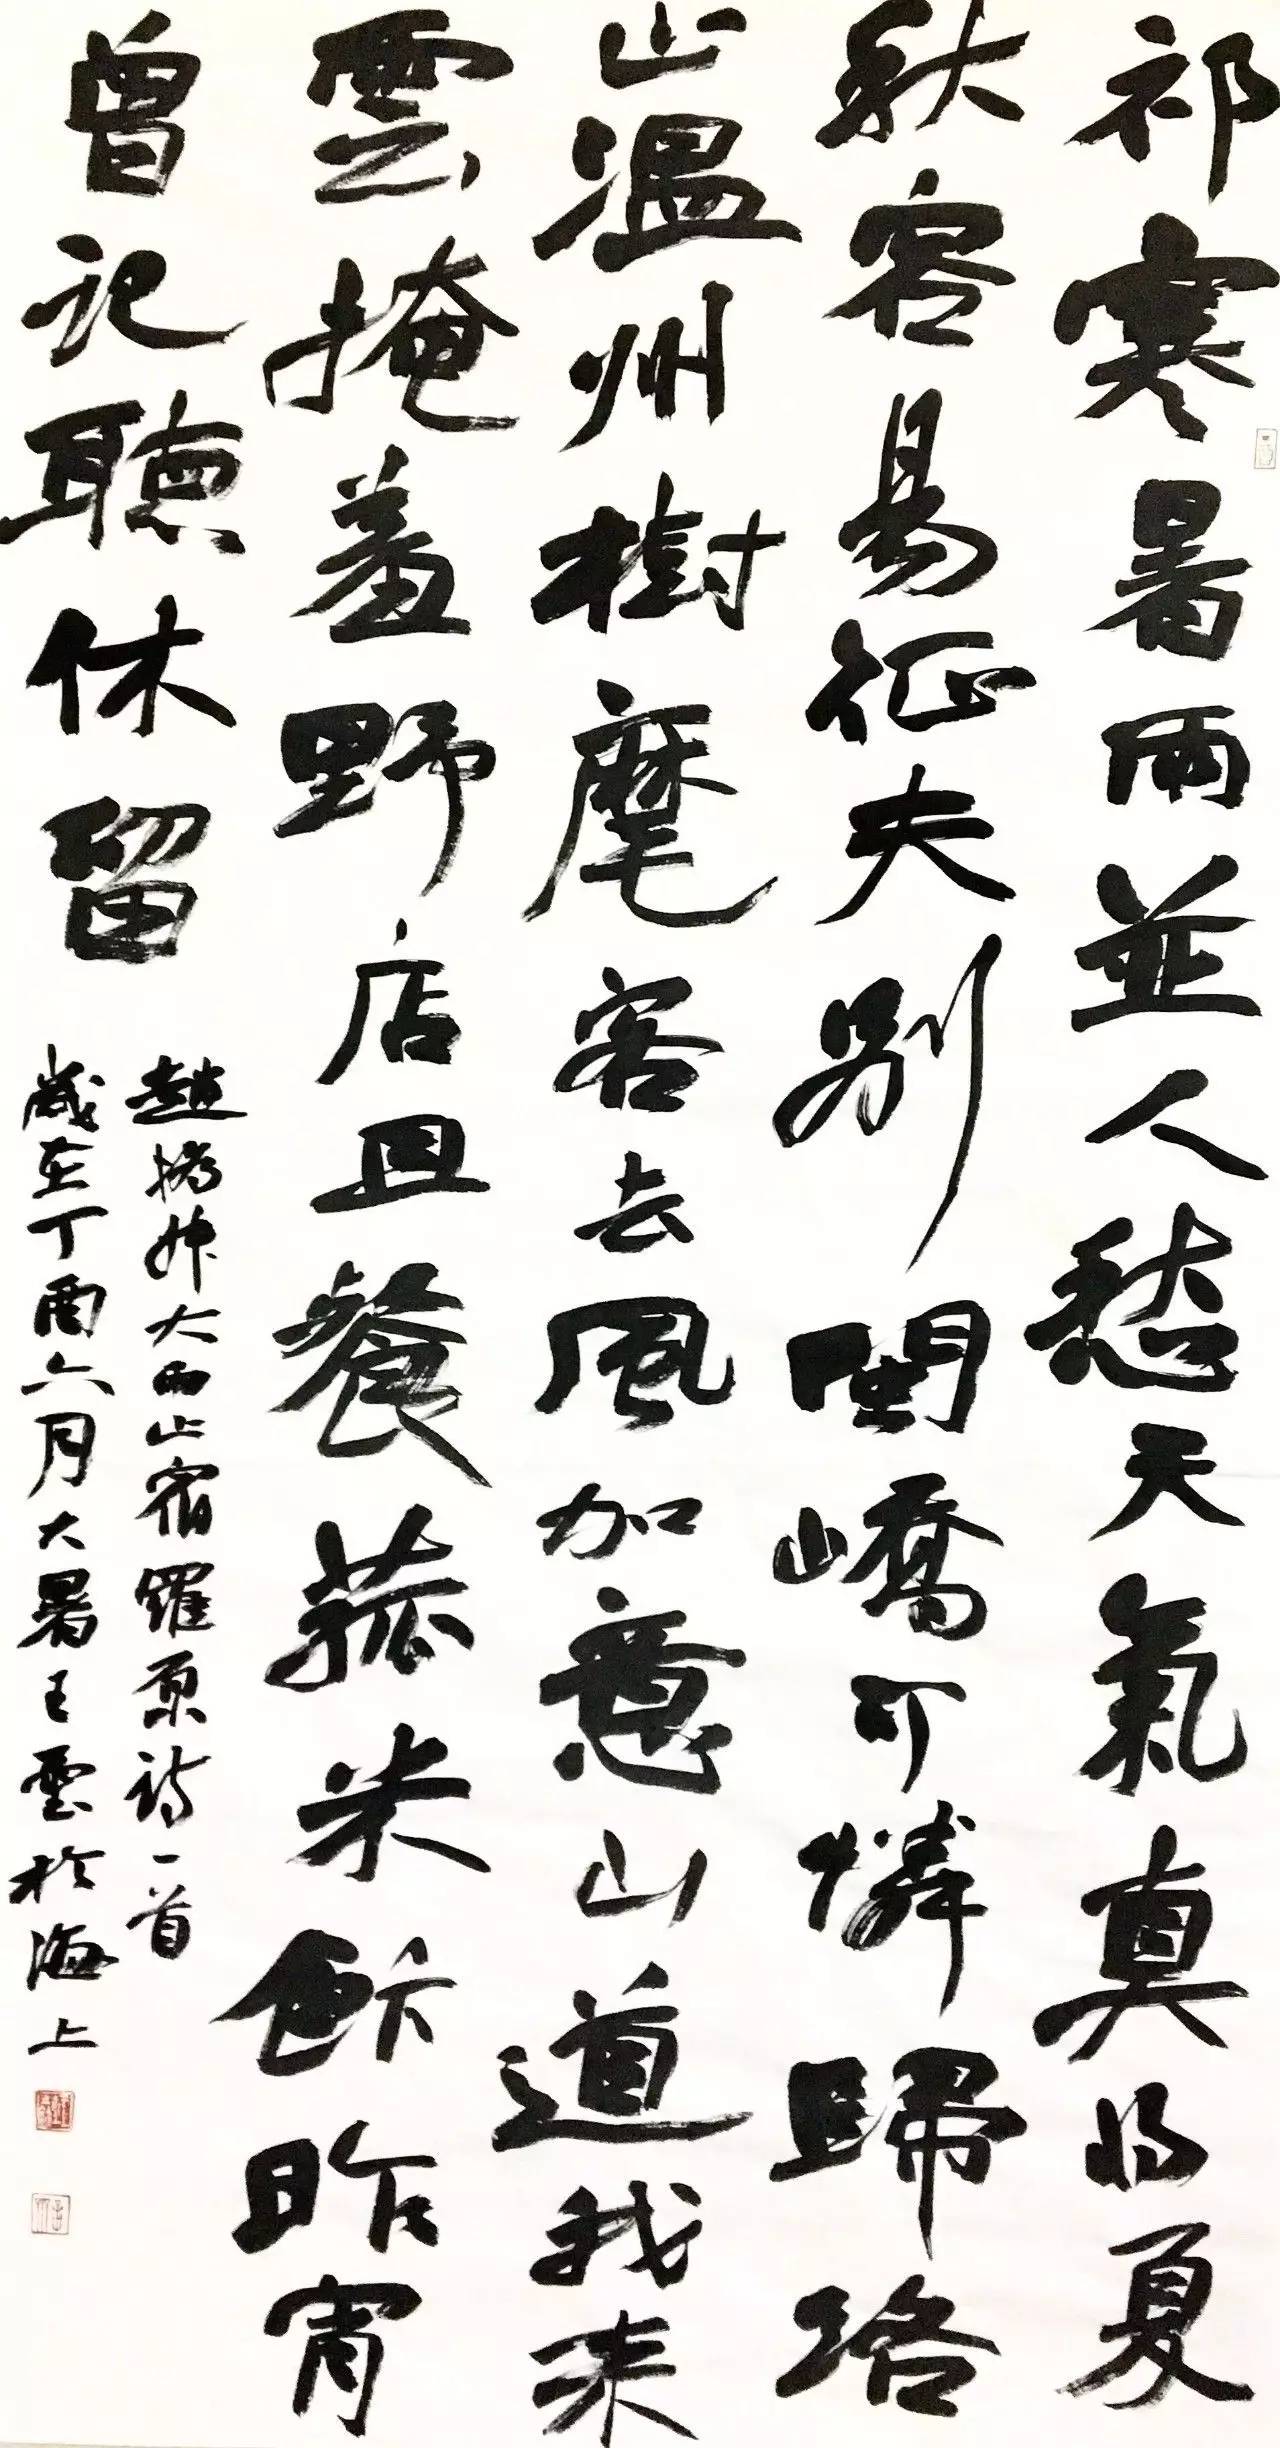 祁寒暑雨並人愁天氣真將夏
秋容易征夫別閩嶠可憐歸路
山溫州樹麾客去風加意山道我來
雲掩羞野店且餐菰米飯昨宵
曾記聽休留
趙撝叔大雨止宿羅原詩一首
歲在丁酉六月大暑王雲於海上